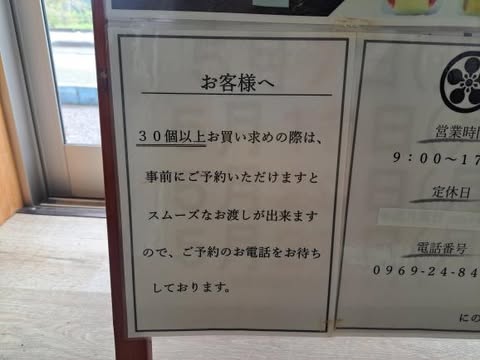 お客様へ
３０個以上お買い求めの際は、
事前にご予約いただけますと
スムーズなお渡しが出来ます
ので、ご予約のお電話をお待ち
しております。
営業時間
９：００～１７
定休日
電話番号
０９６９-２４-８４
にの